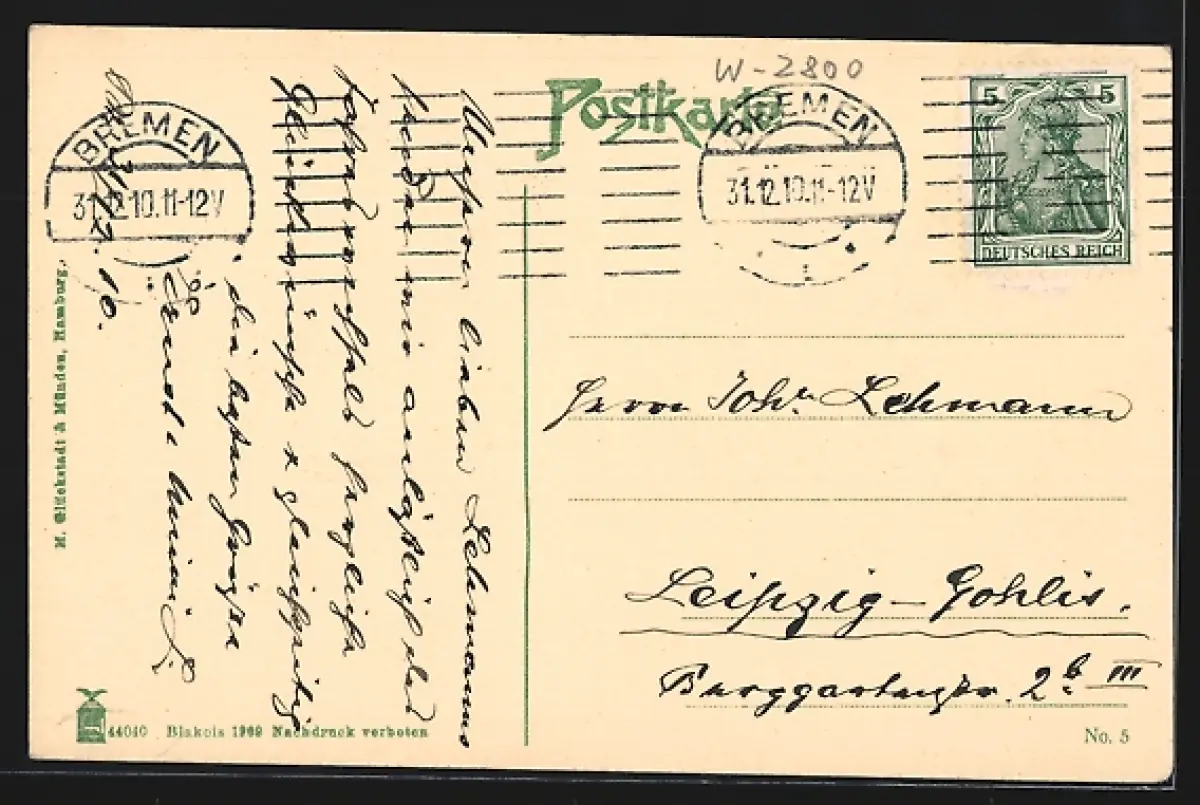 W-2800
Postkarte
BREMEN
31.12.10.11-12V
1
5 5
DEUTSCHES REICH
BREMEN
31.12.10.11-12V
Herrn Johs. Lehmann
Leipzig-Gohlis.
Burggartenstr. 2b III
Unseren lieben Lehmanns
senden wir anläßlich des
Jahreswechsels herzliche
Glückwünsche & gleichzeitig
die besten Grüße
31/12. 10.
M. Glückstadt & Münden, Hamburg.
44040 Blakois 1909 Nachdruck verboten
No. 5